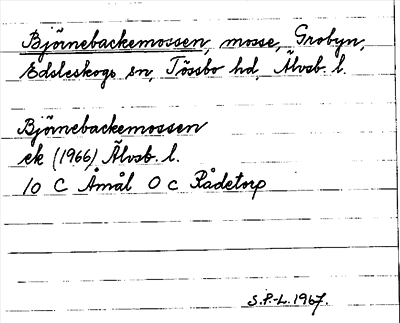 Björnebackemossen, mosse, Grobyn,
Edsleskogs sn, Tössbo hd, Älvsb. l.
Björnebackemossen
ek (1966) Älvsb. l.
10 C Åmål 0 c Rådetorp
S.P-L. 1967.